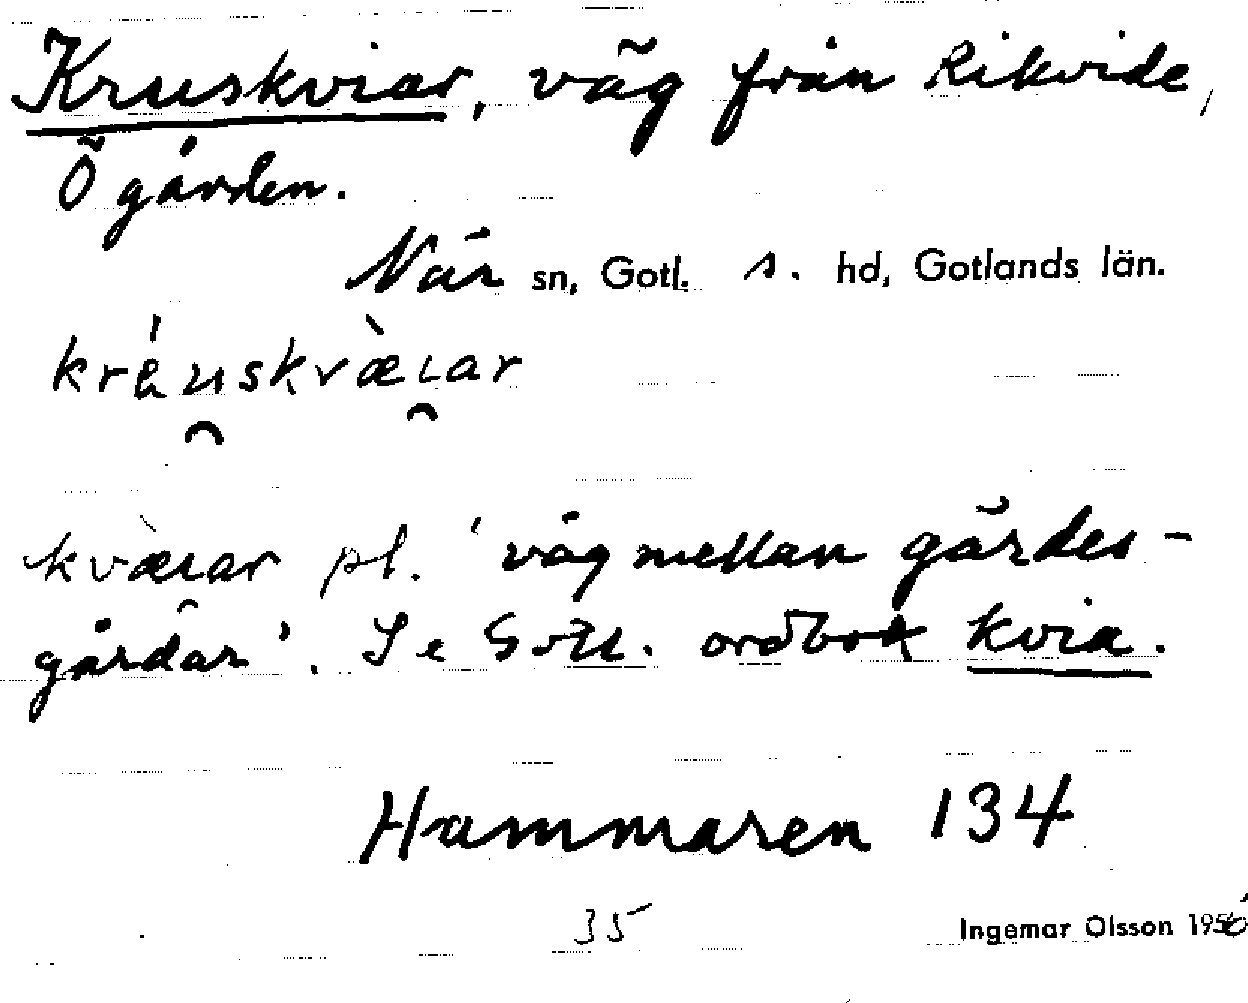 Kruskviar, väg från Rikvide,
Ögården.
När sn, Gotl. s. hd, Gotlands län.
kráu̯skvæ̀ɩ̯ar
kvæ̀ɩ̯ar pl. 'väg mellan gärdes-
gårdar'. Se Gotl. ordbok kvia.
Hammaren 134
35
Ingemar Olsson 1956